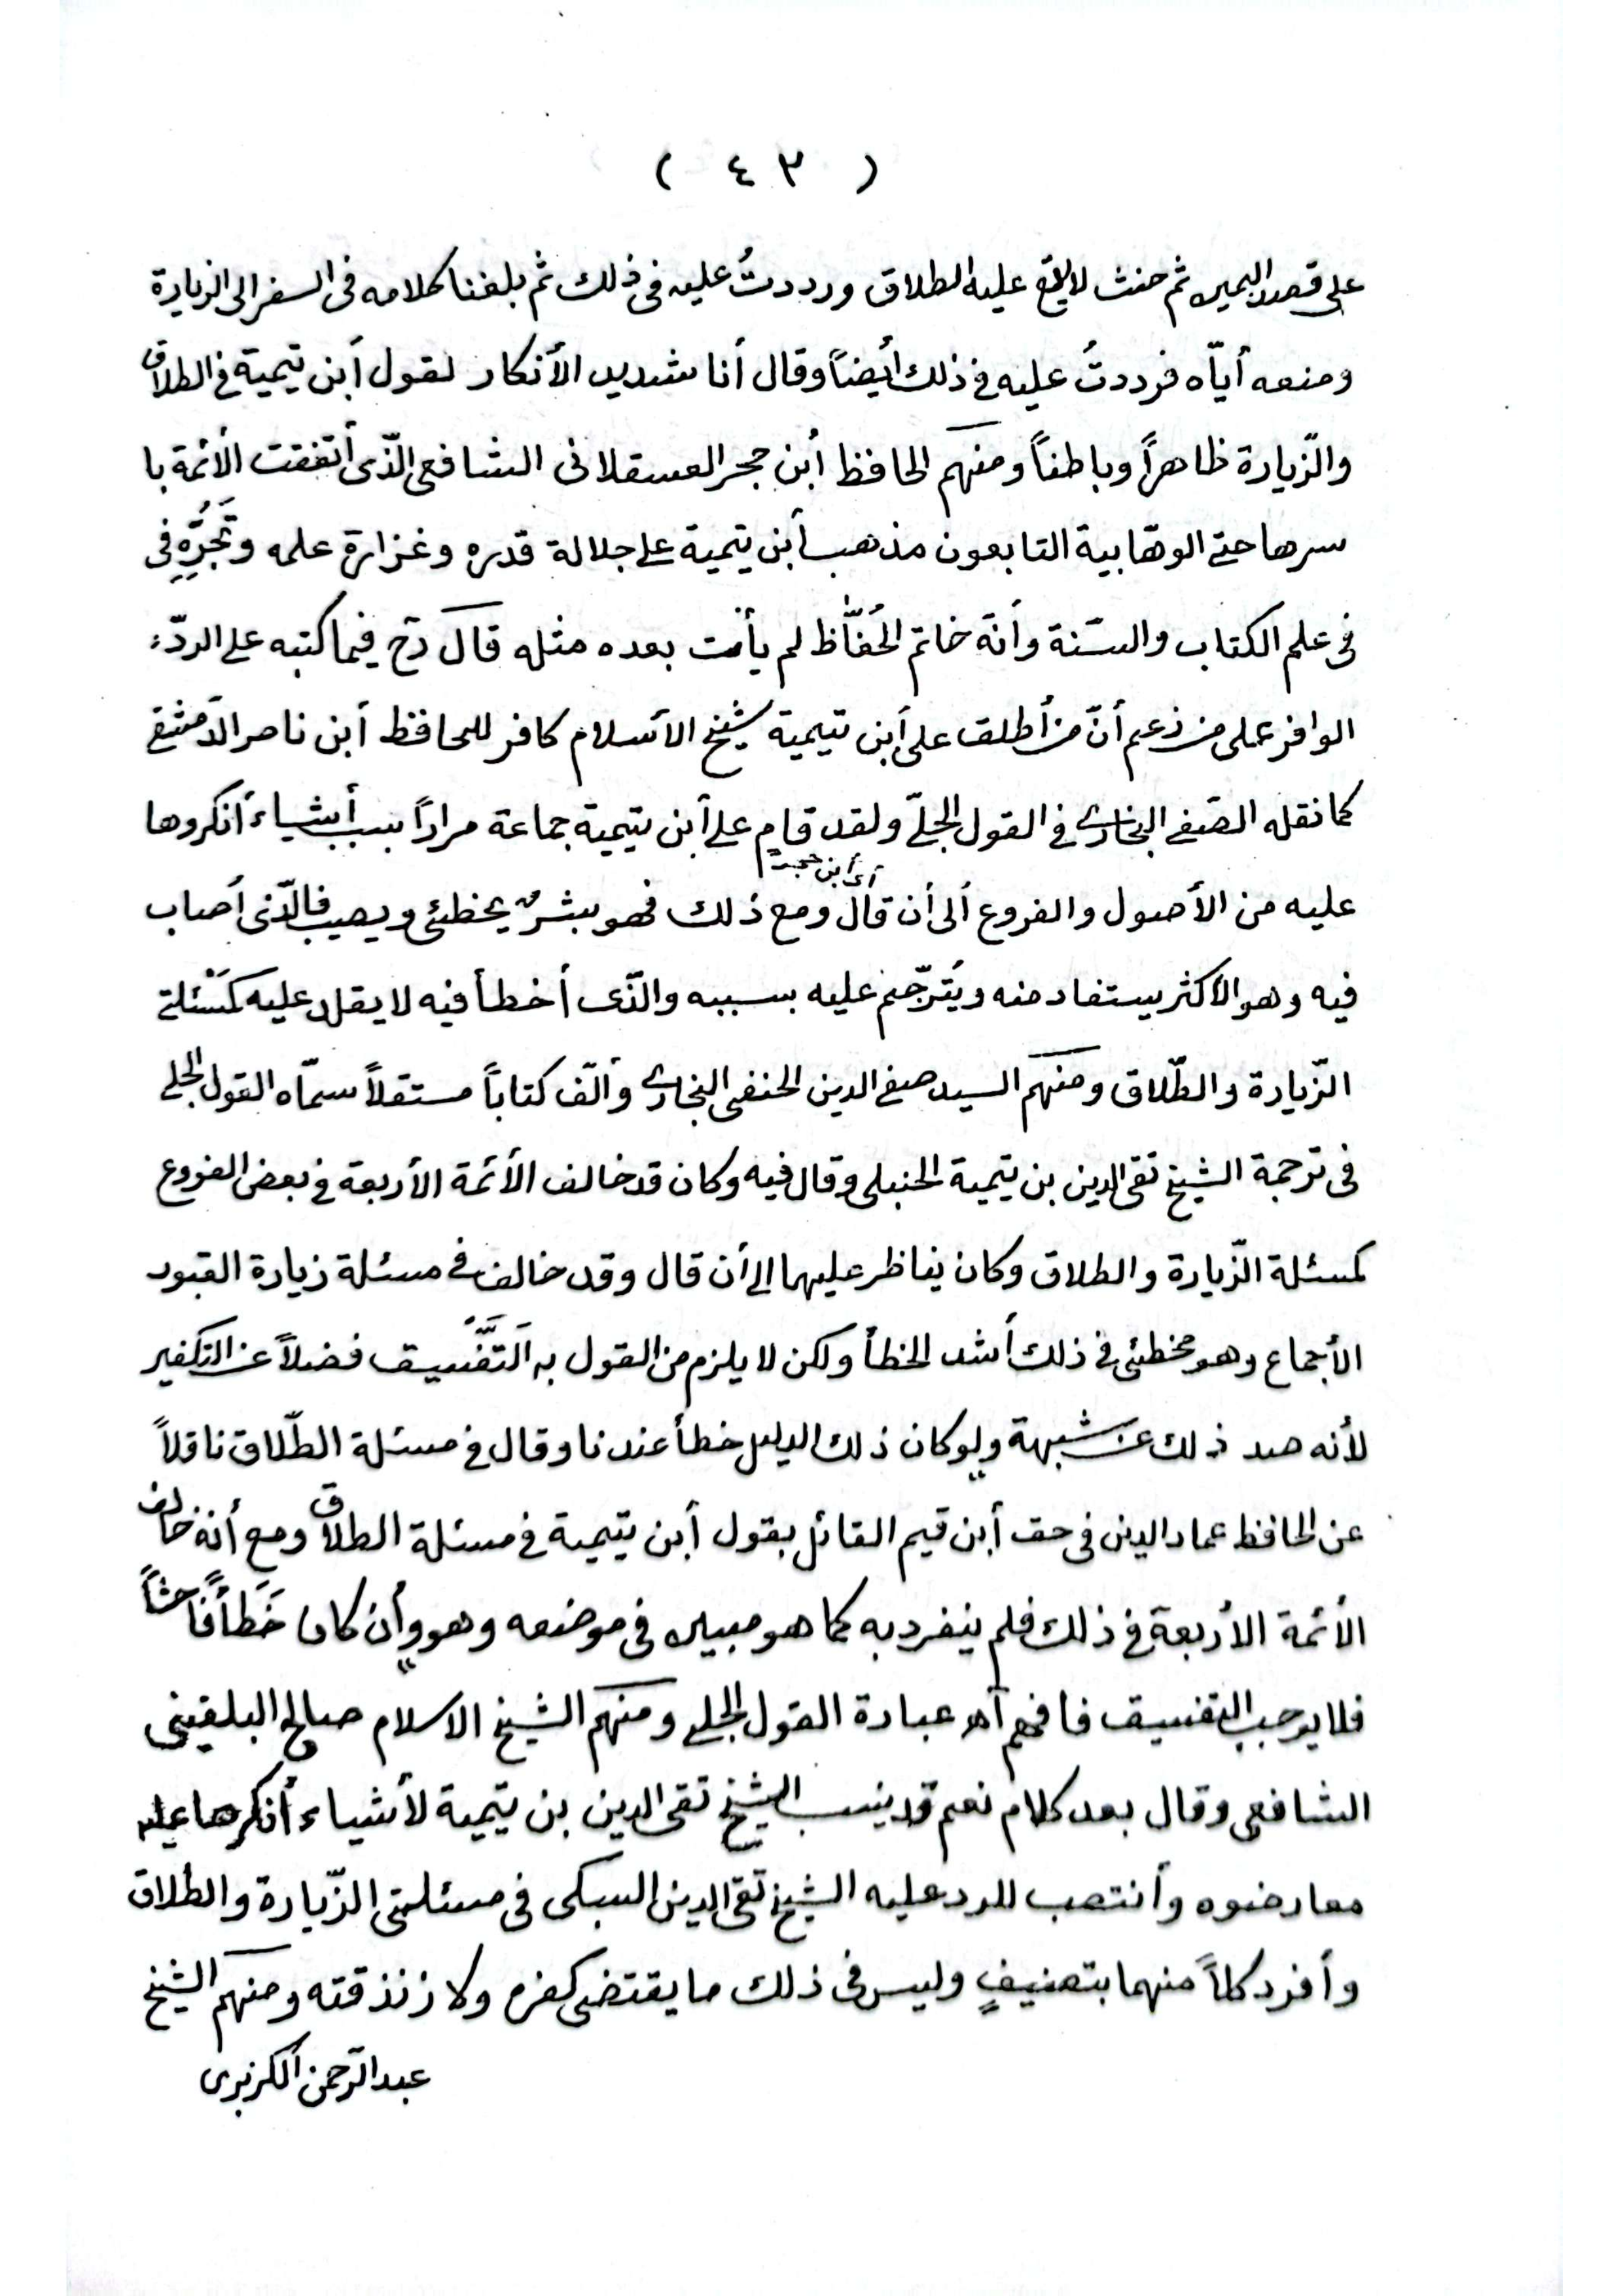 ( ٤٣ )
على قصد اليمين ثم حنث لا يقع عليه الطلاق ورددتُ عليه فى ذلك ثم بلغنا كلامه فى السفر الى الزيارة
ومنعه أيّاه فرددتُ عليه فى ذلك أيضاً وقال أنا شديد الأنكار لقول أبن تيمية فى الطلاق
والزّيارة ظاهراً وباطناً ومنهم الحافظ أبن حجر العسقلانى الشافعى الّذى أتفقت الأئمة با
سرها حتى الوهّابية التابعون مذهب أبن تيمية على جلالة قدره وغزارة علمه وتَبَحُّرِه فى
فى علم الكتاب والسّنة وأنّه خاتم الحُفّاظ لم يأت بعده مثله قال رح فيما كتبه على الردّء
الوافر على من زعم أنّ من أطلق على أبن تيمية شيخ الأسلام كافر للحافظ أبن ناصر الدّمشقى
كما نقله الصّفى البخارى فى القول الجلّى ولقد قام على أبن تيمية جماعة مراراً بسبب أشياء أنكروها
أى أبن حجر
عليه من الأصول والفروع ألى أن قال ومع ذلك فهو بشرٌ يخطئى ويصيب فالّذى أصاب
فيه وهو الأكثر يستفاد منه ويُترّحم عليه بسببه والّذى أخطأ فيه لا يقلد عليه كمَسْئلتى
الزّيارة والطّلاق ومنهم السيد صفى الدين الحنفى البخارى وألّف كتاباً مستقلاً سمّاه القول الجلى
فى ترجمة الشيخ تقى الدين بن تيمية الحنبلى وقال فيه وكان قد خالف الأئمة الأربعة فى بعض الفروع
كمسئلة الزّيارة والطلاق وكان يناظر عليهما الى أن قال وقد خالف فى مسئلة زيارة القبور
الأجماع وهو مخطئى فى ذلك أشد الخطأ ولكن لا يلزم من القول به التَّفْسيق فضلاً عن التكفير
لأنه صد ذلك عن شبهة ولو كان ذلك الدليل خطأ عندنا وقال فى مسئلة الطّلاق ناقلاً
عن الحافظ عماد الدين فى حق أبن قيم القائل بقول أبن تيمية فى مسئلة الطلاق ومع أنه خالف
الأئمة الأربعة فى ذلك فلم ينفرد به كما هو مبين فى موضعه وهو وأن كان خَطَأً فاحشاً
فلا يوجب التفسيق فافهم أهـ عبارة القول الجلى ومنهم الشيخ الاسلام صالح البلقينى
الشافعى وقال بعد كلام نعم قد ينسب الشيخ تقى الدين بن تيمية لأشياء أنكرها عليه
معارضوه وأنتصب للرد عليه الشيخ تقى الدين السبكى فى مسئلتى الزّيارة والطلاق
وأفرد كلاً منهما بتصنيفٍ وليس فى ذلك ما يقتضى كفره ولا زنذقته ومنهم الشيخ
عبد الرّحمن الكزبرى